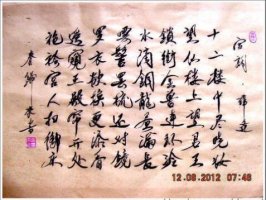 宫詞 薛逢
十二楼中尽晓妝
望仙楼上望君王
鎖銜金兽連环冷
水滴銅龍昼漏長
雲髻罢梳还对镜
羅衣欲换更添香
遥窺正殿帘开处
袍袴宫人扫御床
12.08.2012 07:46